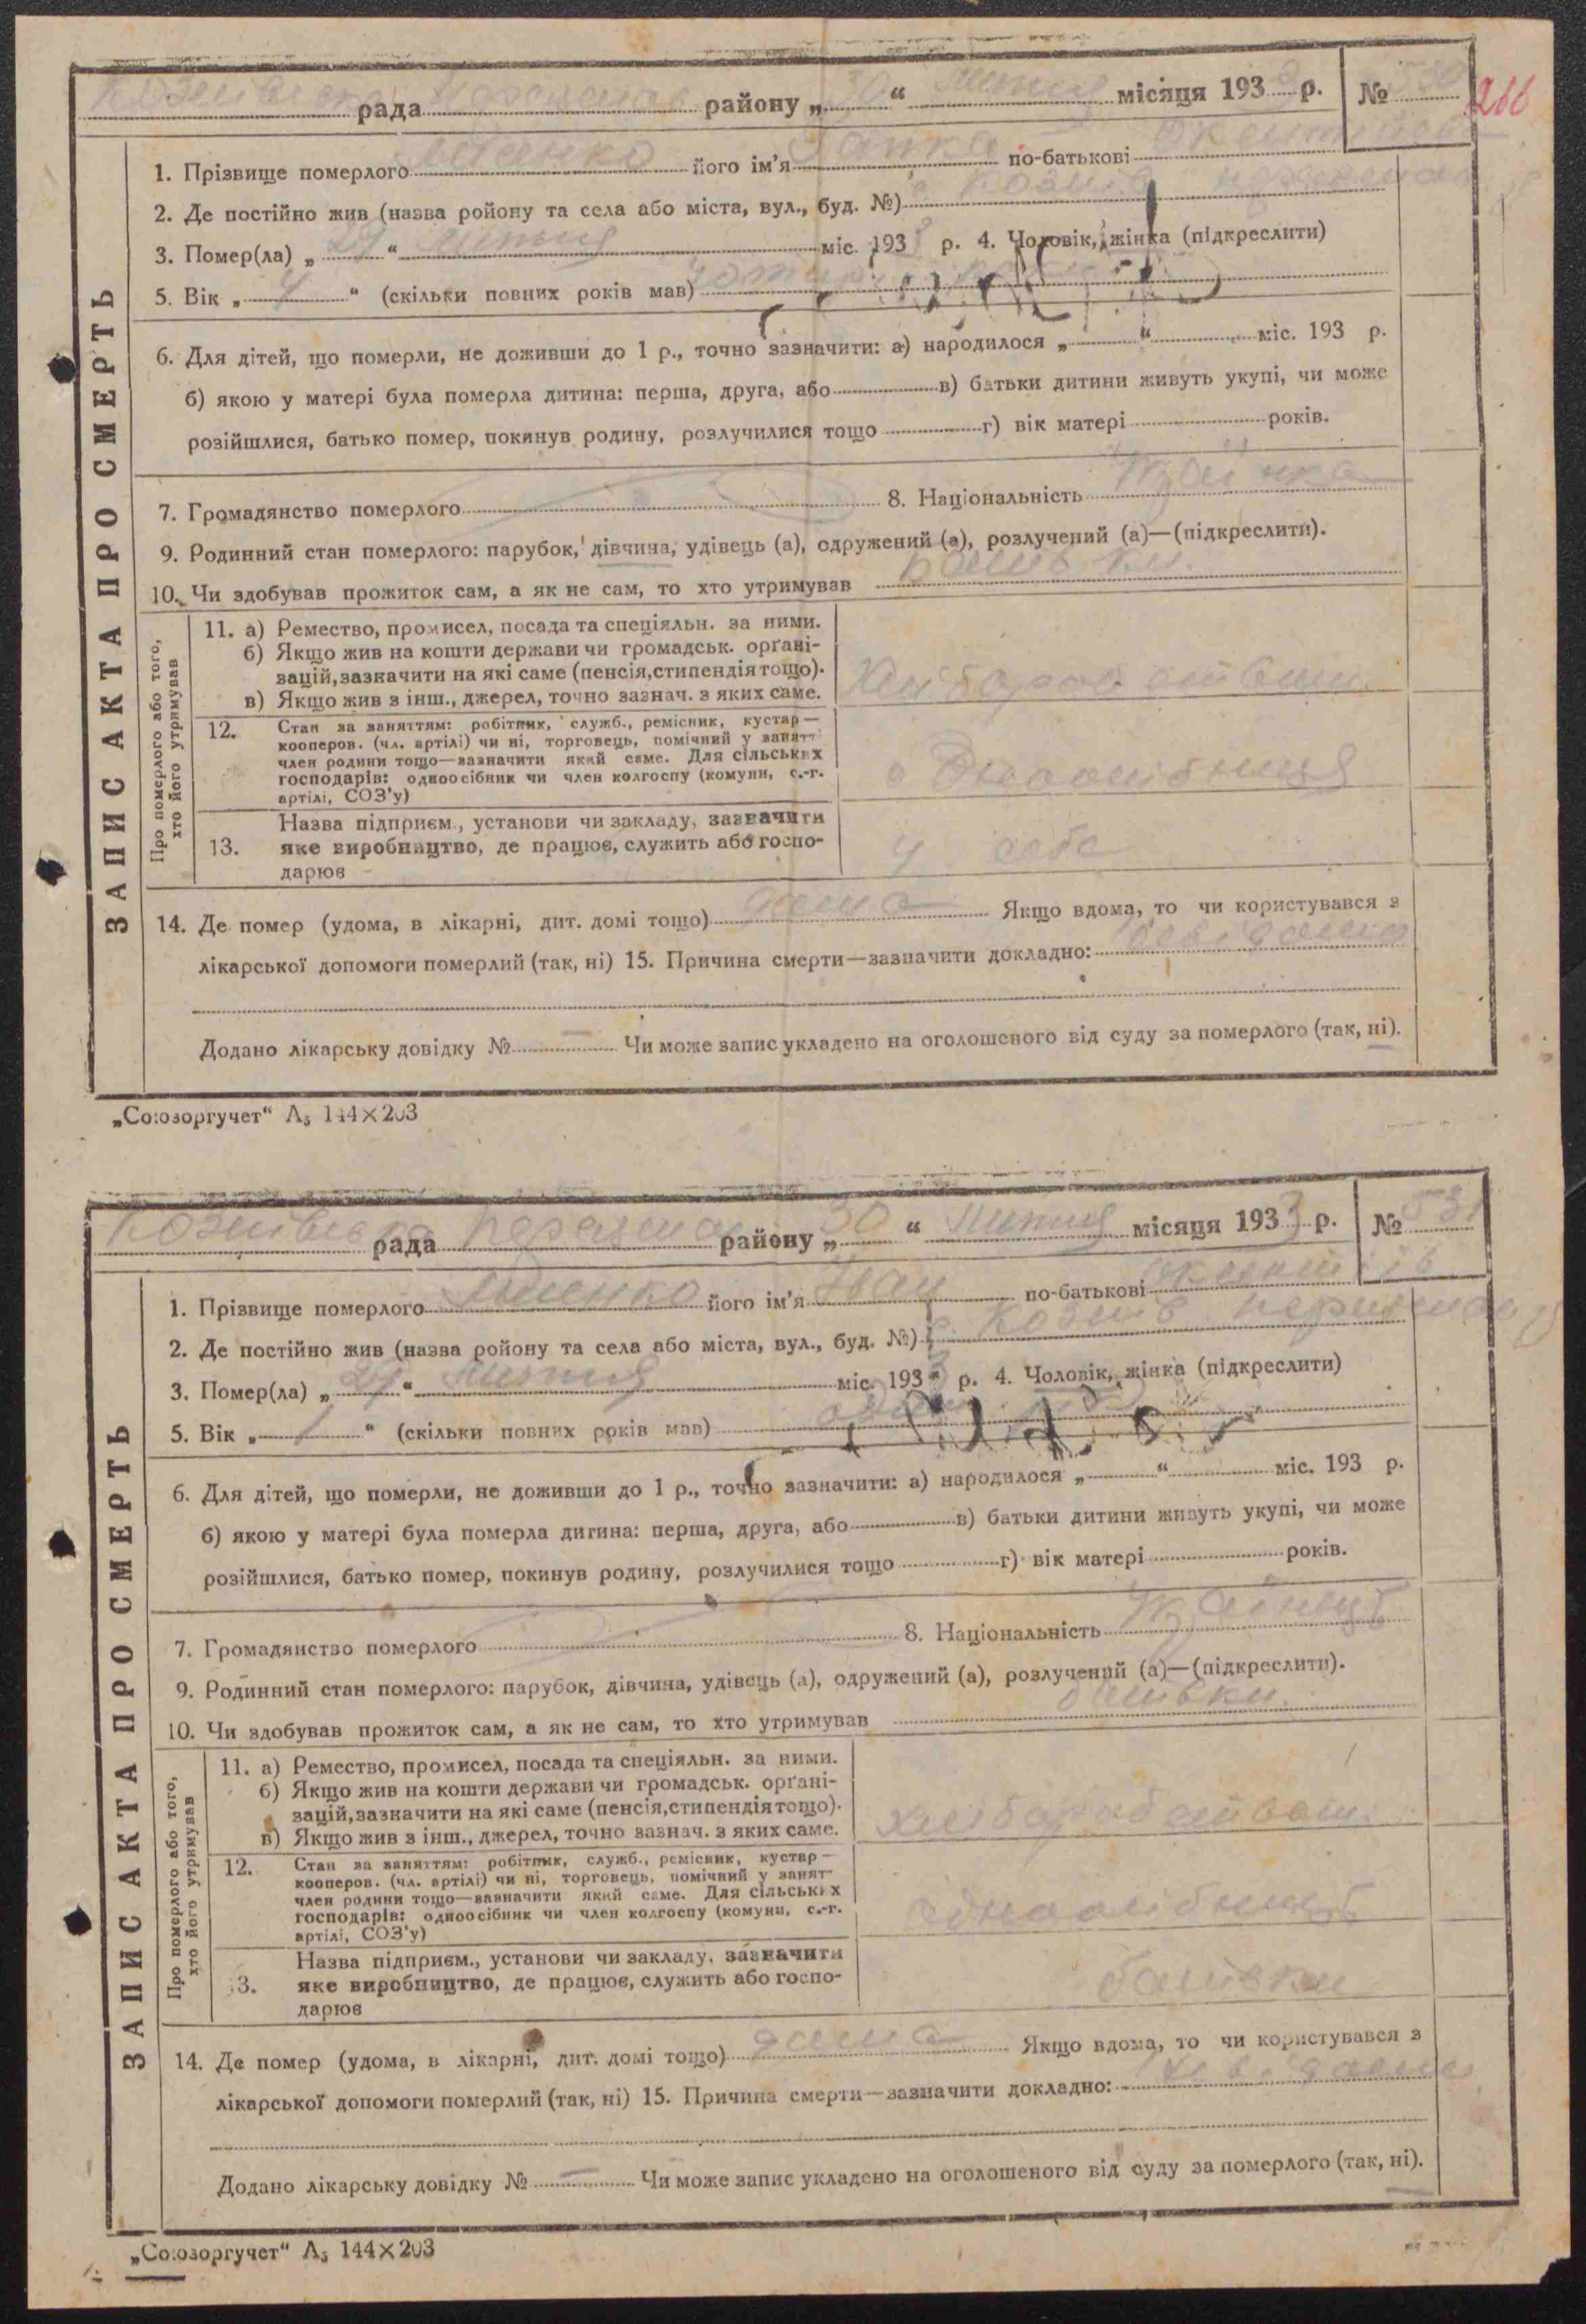 266
рада району „30“ липня місяця 1933 р. № 530
1. Прізвище померлого його ім’я по-батькові
2. Де постійно жив (назва ройону та села або міста, вул., буд. №)
3. Помер(ла) „29“ липня міс. 1933 р. 4. Чоловік, жінка (підкреслити)
5. Вік „4“ (скільки повних років мав) чотири
6. Для дітей, що померли, не доживши до 1 р., точно зазначити: а) народилося „ “ міс. 193 р.
б) якою у матері була померла дитина: перша, друга, або в) батьки дитини живуть укупі, чи може
розійшлися, батько помер, покинув родину, розлучилися тощо г) вік матері років.
7. Громадянство померлого 8. Національність Українка
9. Родинний стан померлого: парубок, дівчина, удівець (а), одружений (а), розлучений (а)—(підкреслити).
10. Чи здобував прожиток сам, а як не сам, то хто утримував батьки.
ЗАПИС АКТА ПРО СМЕРТЬ
Про померлого або того, хто його утримував
11. а) Ремество, промисел, посада та спеціяльн. за ними.
б) Якщо жив на кошти держави чи громадськ. орґані-
зацій, зазначити на які саме (пенсія, стипендія тощо).
в) Якщо жив з інш., джерел, точно зазнач. з яких саме.
хліборобством.
12. Стан за заняттям: робітник, служб., ремісник, кустар—
кооперов. (чл. артілі) чи ні, торговець, помічний у занятт
член родини тощо—зазначити який саме. Для сільських
господарів: одноосібник чи член колгоспу (комуни, с.-г.
артілі, СОЗ’у)
одноосібниця
13. Назва підприєм., установи чи закладу, зазначити
яке виробництво, де працює, служить або госпо-
дарює
у себе
14. Де помер (удома, в лікарні, дит. домі тощо) дома Якщо вдома, то чи користувався з
лікарської допомоги померлий (так, ні) 15. Причина смерти—зазначити докладно: невідома
Додано лікарську довідку № — Чи може запис укладено на оголошеного від суду за померлого (так, ні).
„Союзоргучет“ А₅ 144×203
Козіївська рада району „30“ липня місяця 1933 р. № 531
1. Прізвище померлого його ім’я Іван по-батькові
2. Де постійно жив (назва ройону та села або міста, вул., буд. №)
3. Помер(ла) „29“ липня міс. 1933 р. 4. Чоловік, жінка (підкреслити)
5. Вік „1“ (скільки повних років мав) один
6. Для дітей, що померли, не доживши до 1 р., точно зазначити: а) народилося „ “ міс. 193 р.
б) якою у матері була померла дитина: перша, друга, або в) батьки дитини живуть укупі, чи може
розійшлися, батько помер, покинув родину, розлучилися тощо г) вік матері років.
7. Громадянство померлого 8. Національність Українець
9. Родинний стан померлого: парубок, дівчина, удівець (а), одружений (а), розлучений (а)—(підкреслити).
10. Чи здобував прожиток сам, а як не сам, то хто утримував батьки.
ЗАПИС АКТА ПРО СМЕРТЬ
Про померлого або того, хто його утримував
11. а) Ремество, промисел, посада та спеціяльн. за ними.
б) Якщо жив на кошти держави чи громадськ. орґані-
зацій, зазначити на які саме (пенсія, стипендія тощо).
в) Якщо жив з інш., джерел, точно зазнач. з яких саме.
хліборобством.
12. Стан за заняттям: робітник, служб., ремісник, кустар—
кооперов. (чл. артілі) чи ні, торговець, помічний у занят
член родини тощо—зазначити який саме. Для сільських
господарів: одноосібник чи член колгоспу (комуни, с.-г.
артілі, СОЗ’у)
3. Назва підприєм., установи чи закладу, зазначити
яке виробництво, де працює, служить або госпо-
дарює
батьки
14. Де помер (удома, в лікарні, дит. домі тощо) дома Якщо вдома, то чи користувався з
лікарської допомоги померлий (так, ні) 15. Причина смерти—зазначити докладно: невідома
Додано лікарську довідку № — Чи може запис укладено на оголошеного від суду за померлого (так, ні).
„Союзоргучет“ А₅ 144×203